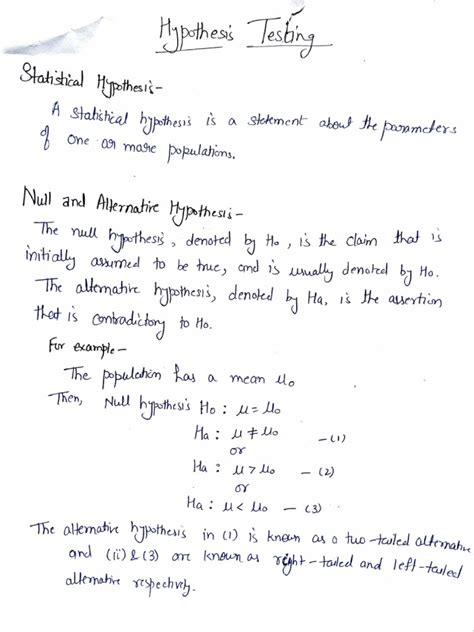 Hypothesis Testing
Statistical Hypothesis-
A statistical hypothesis is a statement about the parameters
of one or more populations.
Null and Alternative Hypothesis-
The null hypothesis, denoted by Ho, is the claim that is
initially assumed to be true, and is usually denoted by Ho.
The alternative hypothesis, denoted by Ha, is the assertion
that is contradictory to Ho.
For example-
The population has a mean μo
Then, Null hypothesis Ho : μ = μo
Ha : μ ≠ μo -(1)
or
Ha : μ > μo - (2)
or
Ha : μ < μo - (3)
The alternative hypothesis in (1) is known as a two-tailed alternative
and (ii) & (3) are known as right-tailed and left-tailed
alternative respectively.